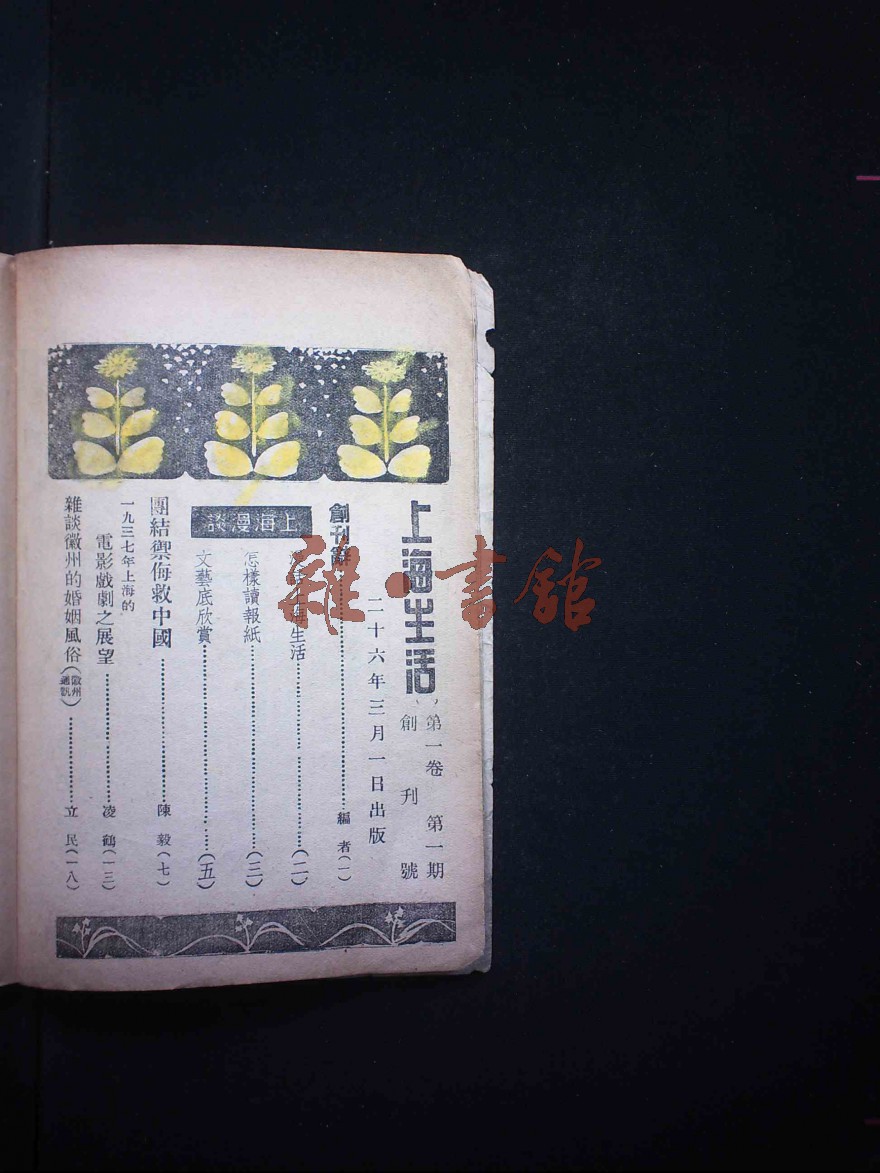 上海生活
第一卷 第一期
創刊號
二十六年三月一日出版
創刊辭 編者(一)
上海漫談
上海生活(二)
怎樣讀報紙(三)
文藝底欣賞(五)
團結禦侮救中國 陳毅(七)
一九三七年上海的
電影戲劇之展望 凌鶴(一三)
雜談徽州的婚姻風俗(徽州通訊) 立民(一八)
雜·書館